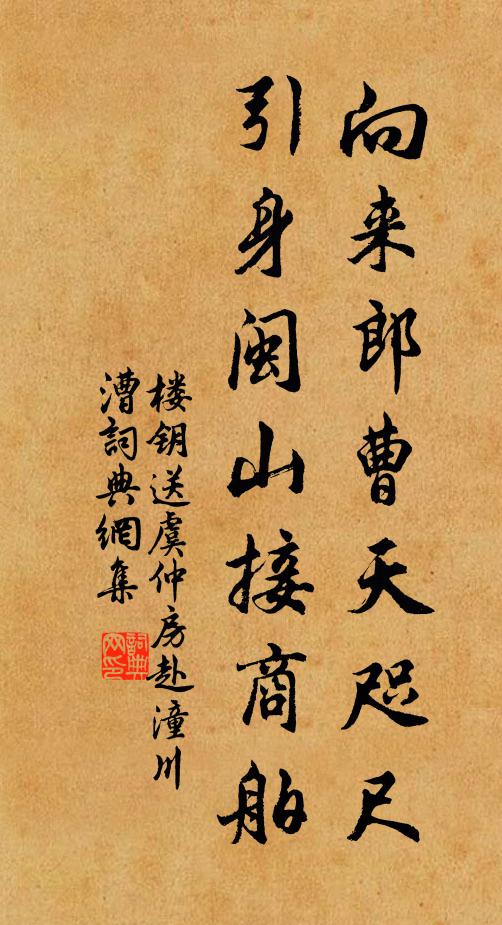 向来郎曹天咫尺
引身闽山接商舶
楼钥送虞仲房赴潼川
漕詞典網集
詞典网印